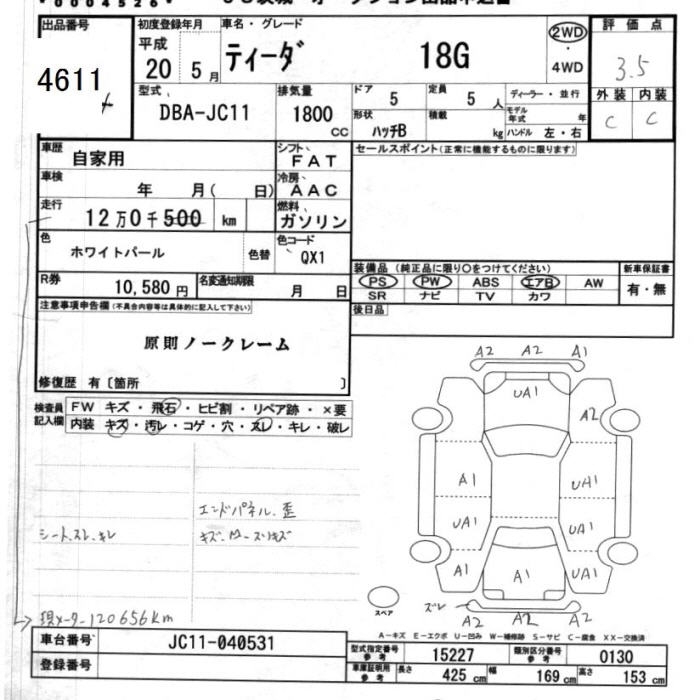 *0004526*
出品番号
4611
初度登録年月
平成
20 5月
車名・グレード
ティーダ 18G
2WD
・
4WD
評価点
3.5
外装 内装
C C
型式
DBA-JC11
排気量
1800
CC
ドア 5
定員 5人
ディーラー・並行
形状 ハッチB
積載 kg
モデル年式 年
ハンドル 左・右
車歴
自家用
シフト
FAT
車検
年 月( 日)
冷房
AAC
走行
12万0千500 km
燃料
ガソリン
色
ホワイトパール
色替
色コード
QX1
R券
10,580円
名変通知期限
月 日
セールスポイント(正常に機能するものに限ります)
装備品(純正品に限り○をつけてください)
新車保証書
PS PW ABS エアB AW
有・無
SR ナビ TV カワ
後日品
注意事項申告欄(不具合内容等は具体的に記入して下さい)
原則ノークレーム
修復歴 有〔箇所 〕
検査員
記入欄
FW キズ・飛石・ヒビ割・リペア跡・×要
内装 キズ・汚レ・コゲ・穴・スレ・キレ・破レ
エンドパネル、歪
シート、スレ、キレ
現メーター120656km
A2 A2 A1
UA1
A2
A1 UA1
UA1 UA1
A1 A1 UA1
ズレ
A2 A2 A2
スペア
A-キズ E-エクボ U-凹み W-補修跡 S-サビ C-腐食 XX-交換済
車台番号
JC11-040531
登録番号
型式指定番号
参考
15227
類別区分番号
参考
0130
車庫証明用
参考
長さ 425cm
幅 169cm
高さ 153cm